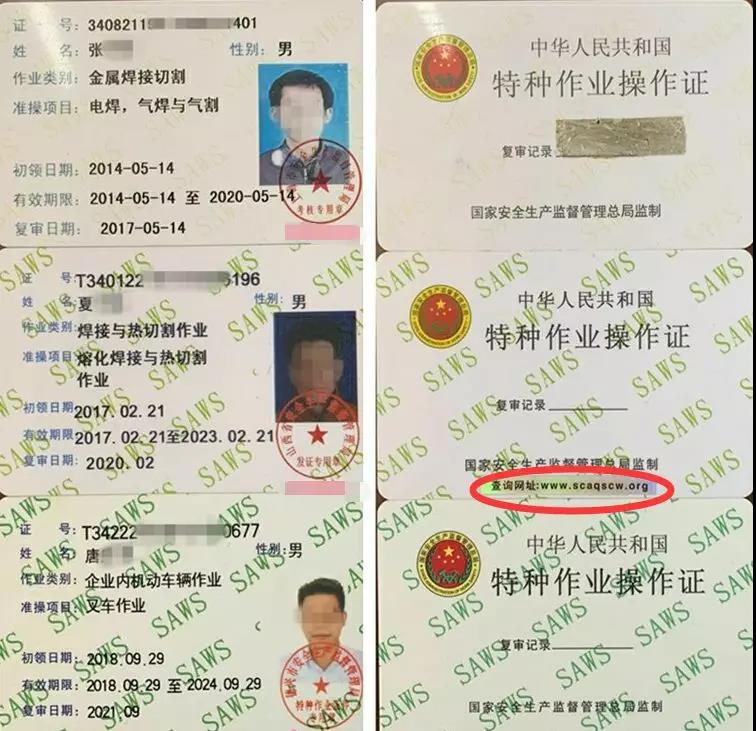 证 号: 3408211 401
姓 名: 张
性别: 男
作业类别: 金属焊接切割
准操项目: 电焊，气焊与气割
初领日期: 2014-05-14
有效期限: 2014-05-14 至 2020-05-14
复审日期: 2017-05-14
考核专用章
中华人民共和国
特种作业操作证
复审记录
国家安全生产监督管理总局监制
证 号: T340122 196
姓 名: 夏
性别: 男
作业类别: 焊接与热切割作业
准操项目: 熔化焊接与热切割
作业
初领日期: 2017.02.21
有效期限: 2017.02.21至2023.02.21
复审日期: 2020.02
发证专用章
SAWS
中华人民共和国
特种作业操作证
复审记录
国家安全生产监督管理总局监制
查询网址:www.scaqscw.org
SAWS
证 号: T34222 0677
姓 名: 唐
性别: 男
作业类别: 企业内机动车辆作业
准操项目: 叉车作业
初领日期: 2018.09.29
有效期限: 2018.09.29 至 2024.09.29
复审日期: 2021.09
SAWS
中华人民共和国
特种作业操作证
复审记录
国家安全生产监督管理总局监制
SAWS